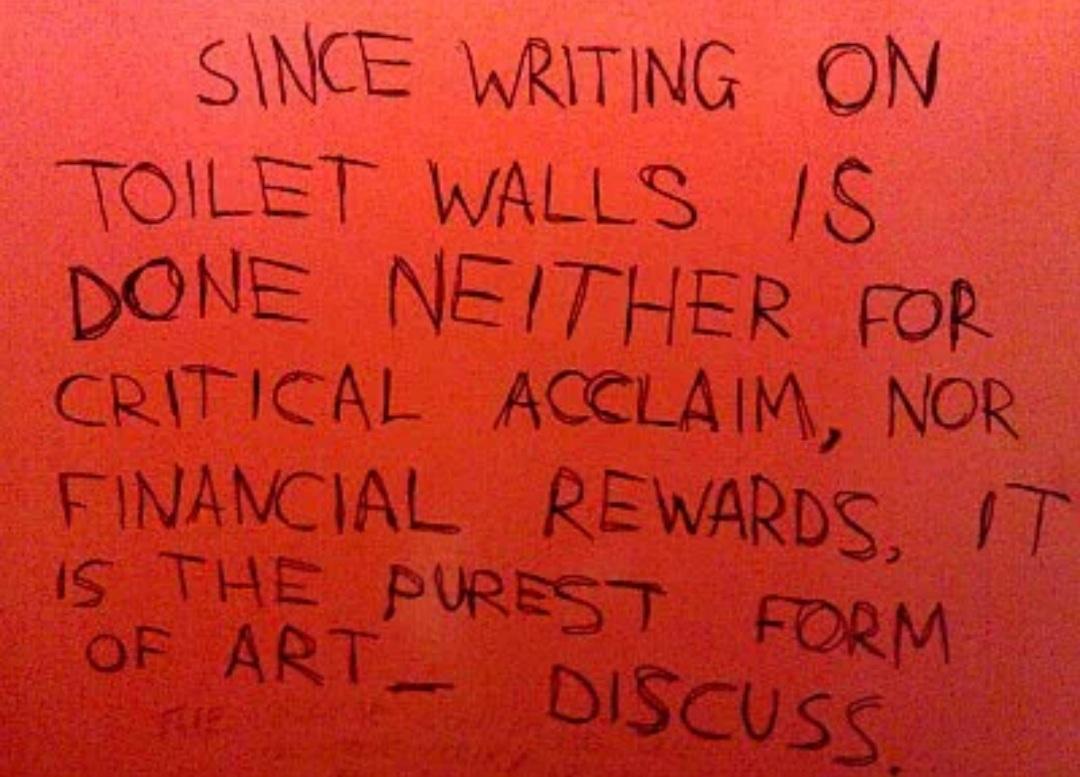 SINCE WRITING ON
TOILET WALLS IS
DONE NEITHER FOR
CRITICAL ACCLAIM, NOR
FINANCIAL REWARDS, IT
IS THE PUREST FORM
OF ART_ DISCUSS.